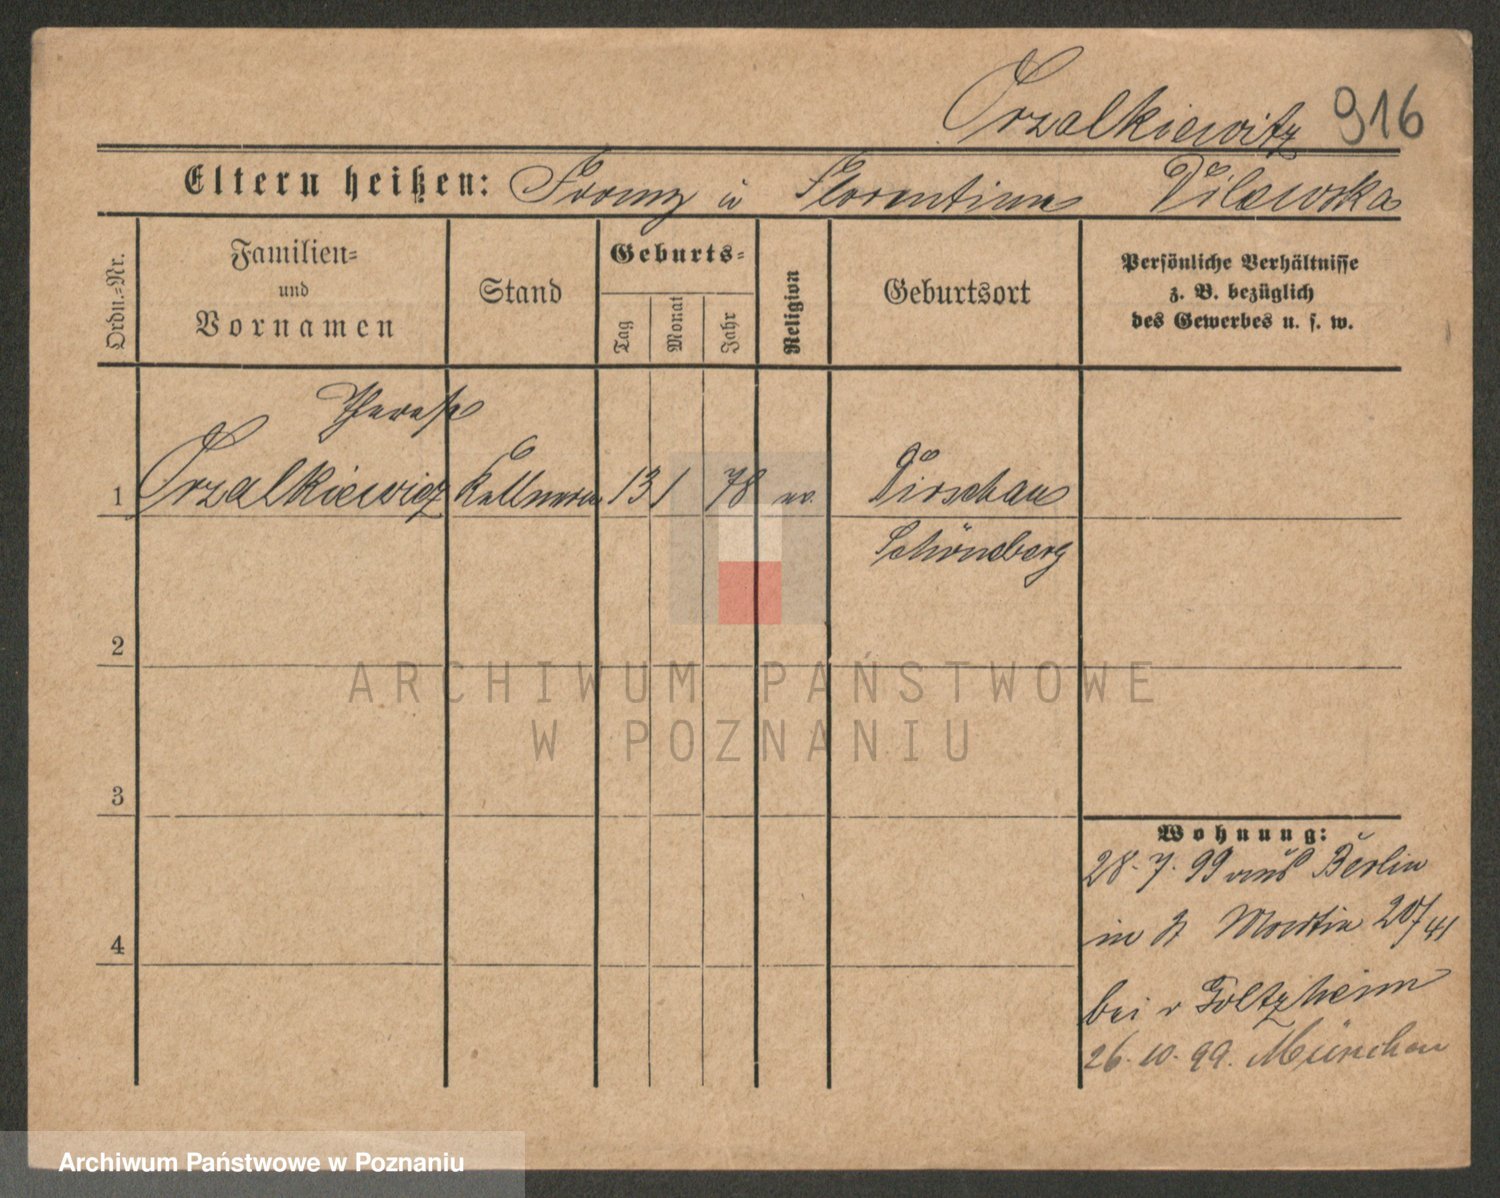 Orzalkiewitz 916
Eltern heißen: Franz u Florentine Vilewska
Ordn.=Nr.
Familien=
und
Vornamen
Stand
Geburts=
Tag
Monat
Jahr
Religion
Geburtsort
Persönliche Verhältnisse
z. B. bezüglich
des Gewerbes u. s. w.
Therese
1 Orzalkiewicz Kellnerin 13 1 78 ev. Dirschau
Schöneberg
2
ARCHIWUM PAŃSTWOWE
W POZNANIU
3
Wohnung:
28. 7. 99 aus Berlin
in St Martin 20/41
4
bei v Foltzheim
26. 10. 99. München
Archiwum Państwowe w Poznaniu